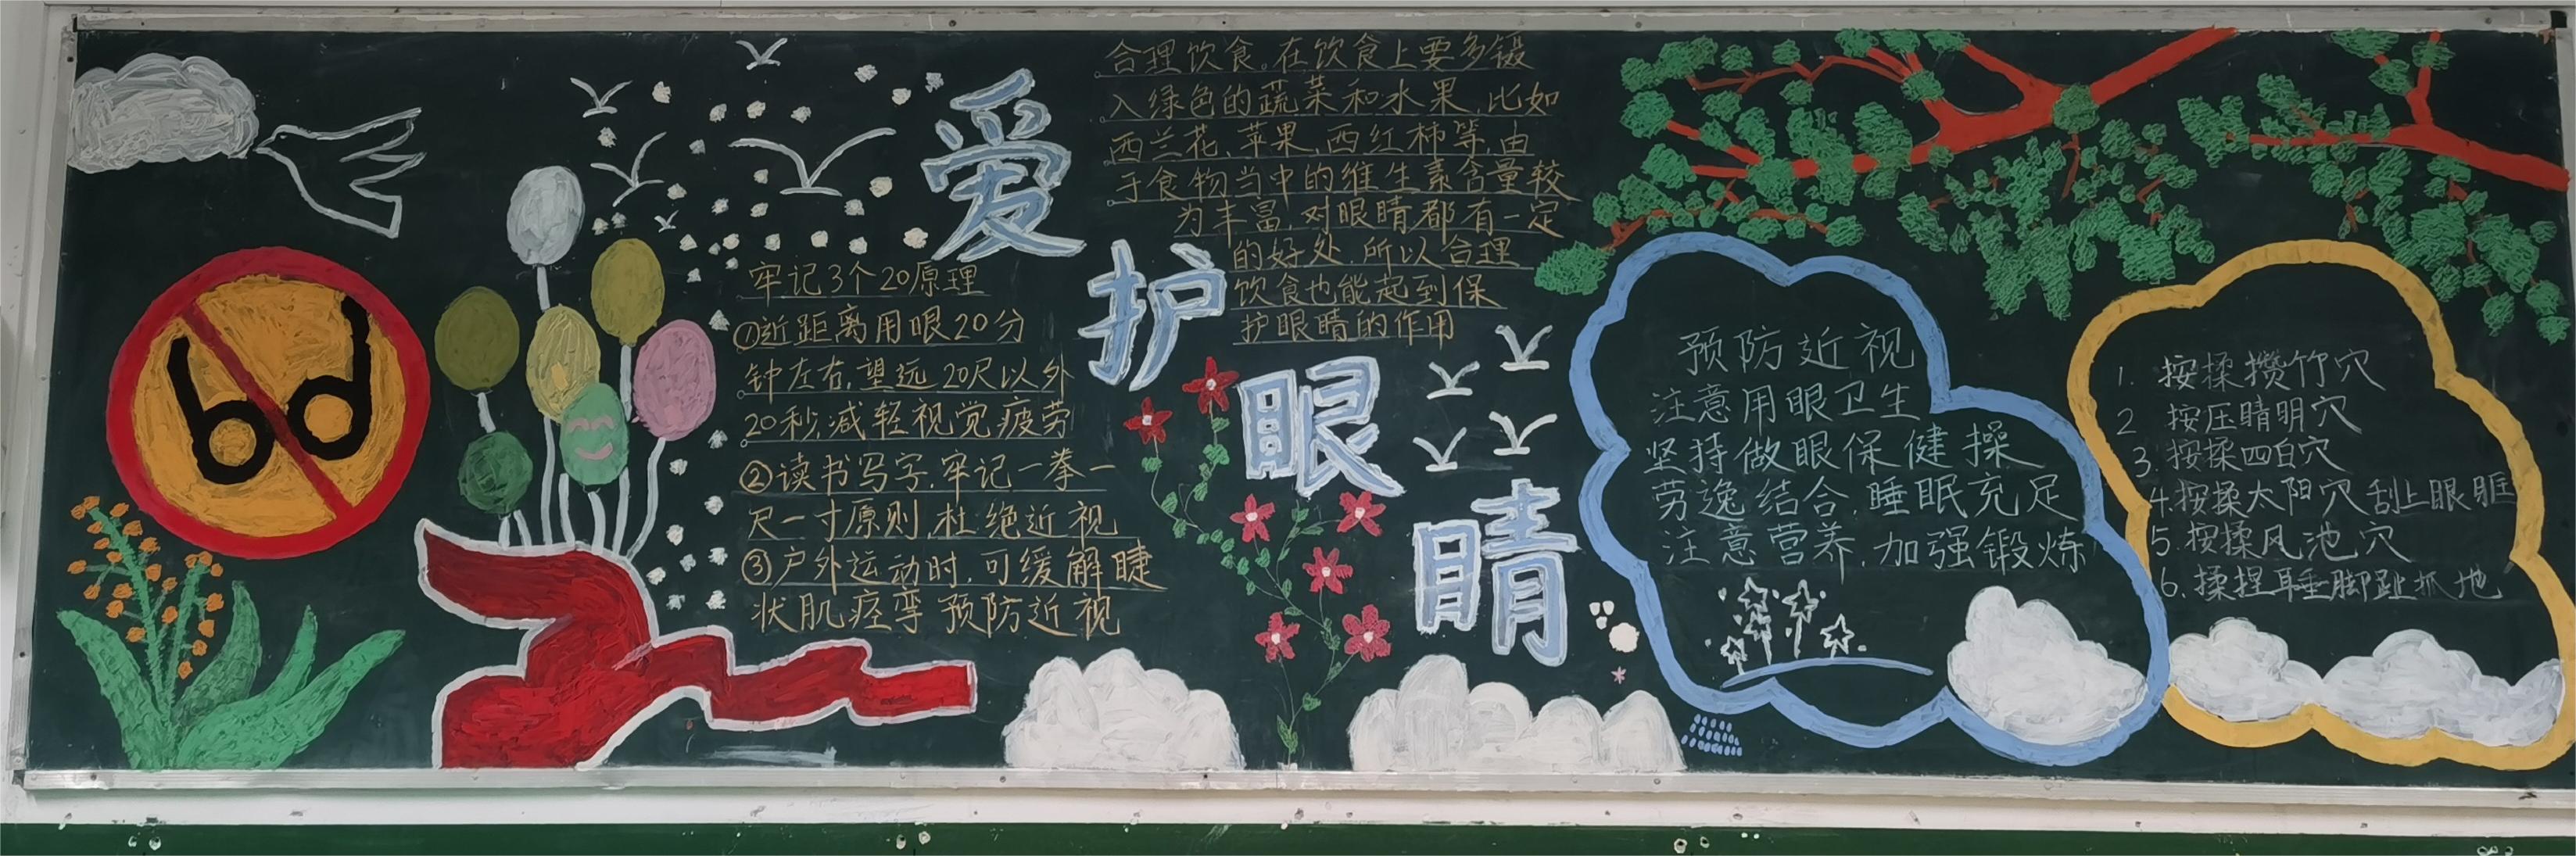 爱护眼睛
牢记3个20原理
①近距离用眼20分
钟左右,望远20尺以外
20秒,减轻视觉疲劳
②读书写字,牢记一拳一
尺一寸原则,杜绝近视
③户外运动时,可缓解睫
状肌痉挛预防近视
合理饮食。在饮食上要多镊
入绿色的蔬菜和水果,比如
西兰花、苹果、西红柿等,由
于食物当中的维生素含量较
为丰富,对眼睛都有一定
的好处,所以合理
饮食也能起到保
护眼睛的作用
预防近视
注意用眼卫生
坚持做眼保健操
劳逸结合,睡眠充足
注意营养,加强锻炼
1. 按揉攒竹穴
2 按压睛明穴
3.按揉四白穴
4.按揉太阳穴刮上眼眶
5.按揉风池穴
6.揉捏耳垂脚趾抓地